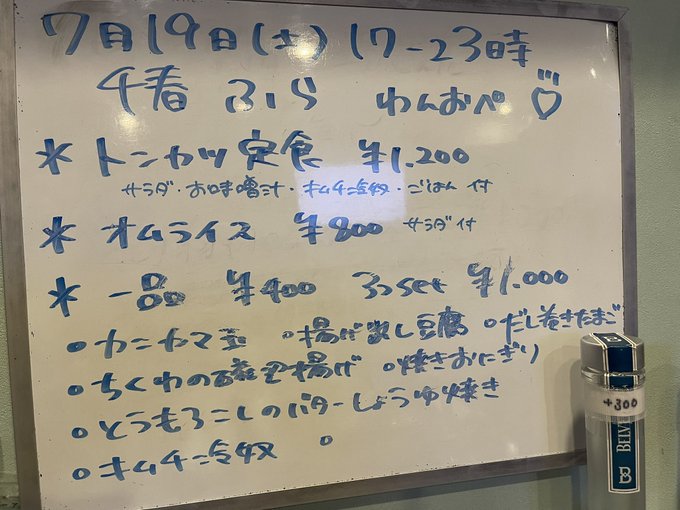 7月19日(土) 17-23時
千春 ふら わんおぺ♡
* トンカツ定食 ¥1,200
サラダ・お味噌汁・キムチ冷奴・ごはん 付
* オムライス ¥800 サラダ付
* 一品 ¥400 3つset ¥1,000
○カニカマ玉 ○揚げ出し豆腐 ○だし巻きたまご
○ちくわの磯辺揚げ ○焼きおにぎり
○とうもろこしのバターしょうゆ焼き
○キムチ冷奴 ○
+300
B